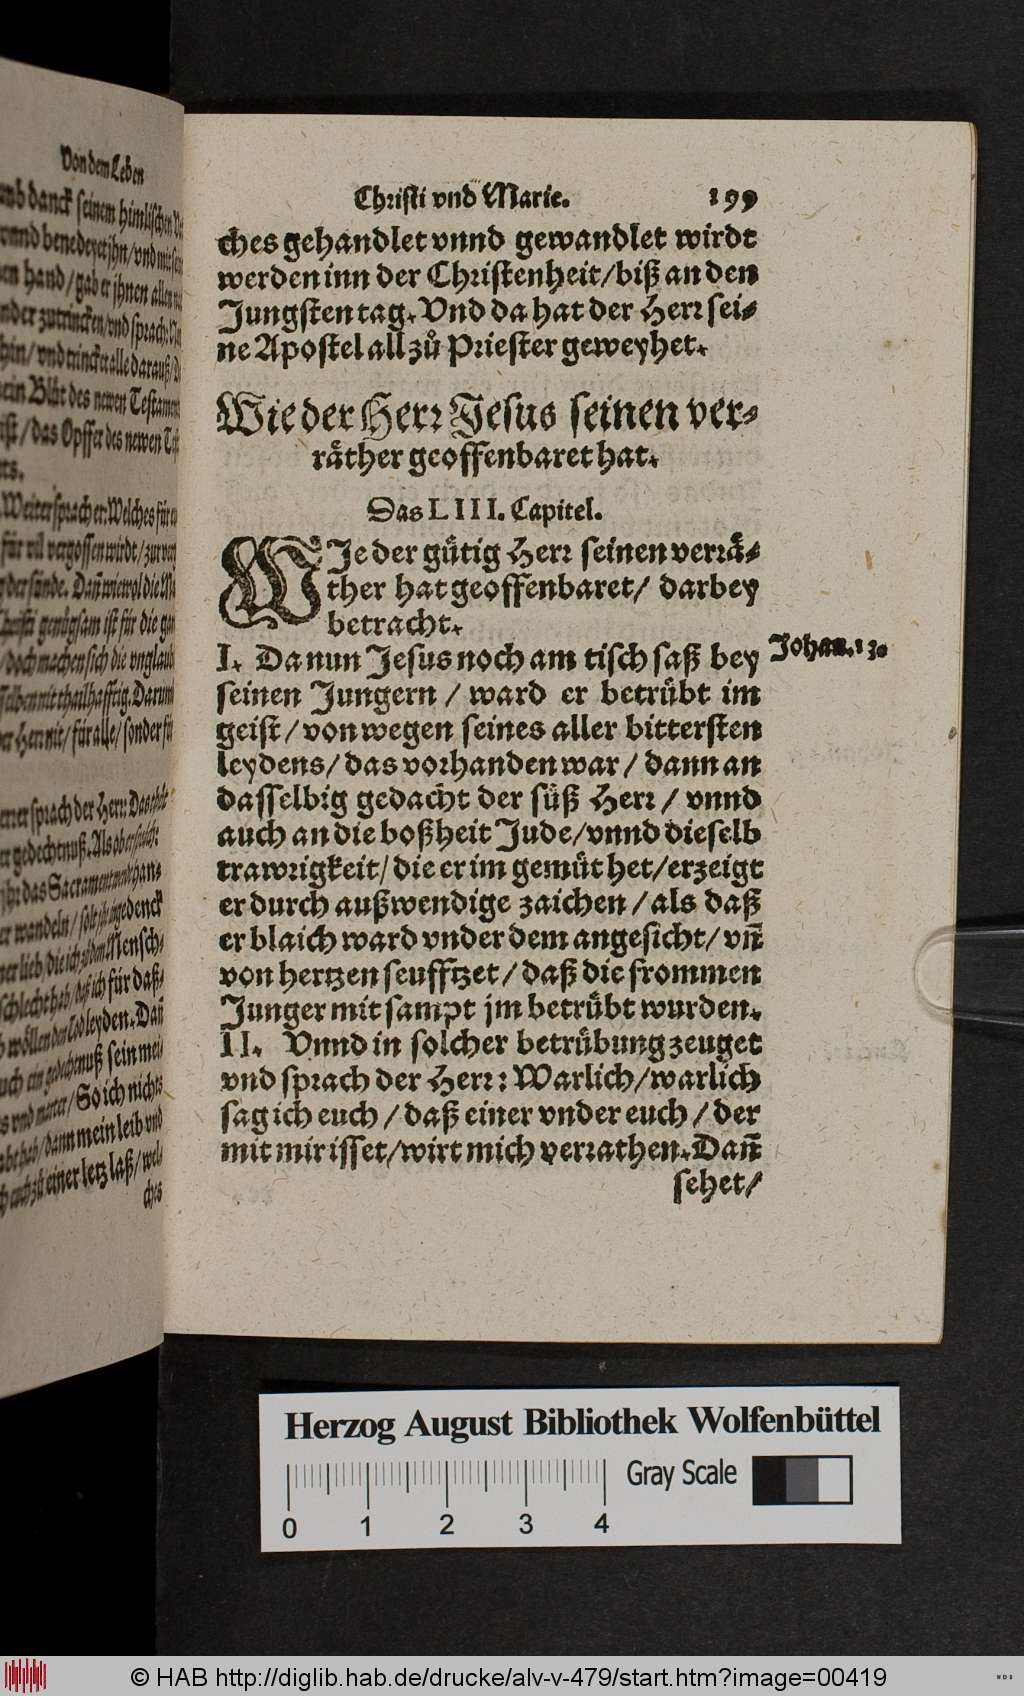 Von dem Leben
vnd danck seinem himlischen
vnnd benedeyet jhn/vnd mit sein
en hand/gab er jhnen allen
zutrincken/vnd sprach:
hin/vnd trincket alle darauß/
Blůt des newen Testament
ist/das Opffer des newen
Weiter sprach er: Welches für
für vil vergossen wirdt/zur
der sünde. Dañ wiewol die
Christi genůgsam ist für die
/doch machen sich die vnglaub
mittheilhafftig. Darumb
der Herr nit/für alle/sonder für
sprach der Herr: Das thůt
gedechtnuß. Als ober sprich:
jhr das Sacrament
wandeln/solt jhr ingedenck
lieb/die ich zů dem Mensch-
schlecht hab/daß ich für daß-
wöllen den Tod leyden. Dañ
auch ein gedechtnuß sein mei-
vnd marter/So ich nichts
hab/dann mein leib vnd
euch zů einer letz laß/wel-
ches
Christi vnd Marie. 199
ches gehandlet vnnd gewandlet wirdt
werden inn der Christenheit/biß an den
Jungsten tag. Vnd da hat der Herr sei-
ne Apostel all zů Priester geweyhet.
Wie der Herr Jesus seinen ver-
räther geoffenbaret hat.
Das LIII. Capitel.
WJe der gütig Herr seinen verrä-
ther hat geoffenbaret/ darbey
betracht.
I. Da nun Jesus noch am tisch saß bey
Johan. 13.
seinen Jungern / ward er betrübt im
geist/von wegen seines aller bittersten
leydens/das vorhanden war/dann an
dasselbig gedacht der süß Herr / vnnd
auch an die boßheit Jude/vnnd dieselb
trawrigkeit/die er im gemüt het/erzeigt
er durch außwendige zaichen/als daß
er blaich ward vnder dem angesicht/vñ
von hertzen seufftzet/daß die frommen
Junger mit sampt jm betrübt wurden.
II. Vnnd in solcher betrübung zeuget
vnd sprach der Herr: Warlich/warlich
sag ich euch/daß einer vnder euch/der
mit mir isset/wirt mich verrathen. Dañ
sehet/
Herzog August Bibliothek Wolfenbüttel
Gray Scale
0 1 2 3 4
© HAB http://diglib.hab.de/drucke/alv-v-479/start.htm?image=00419